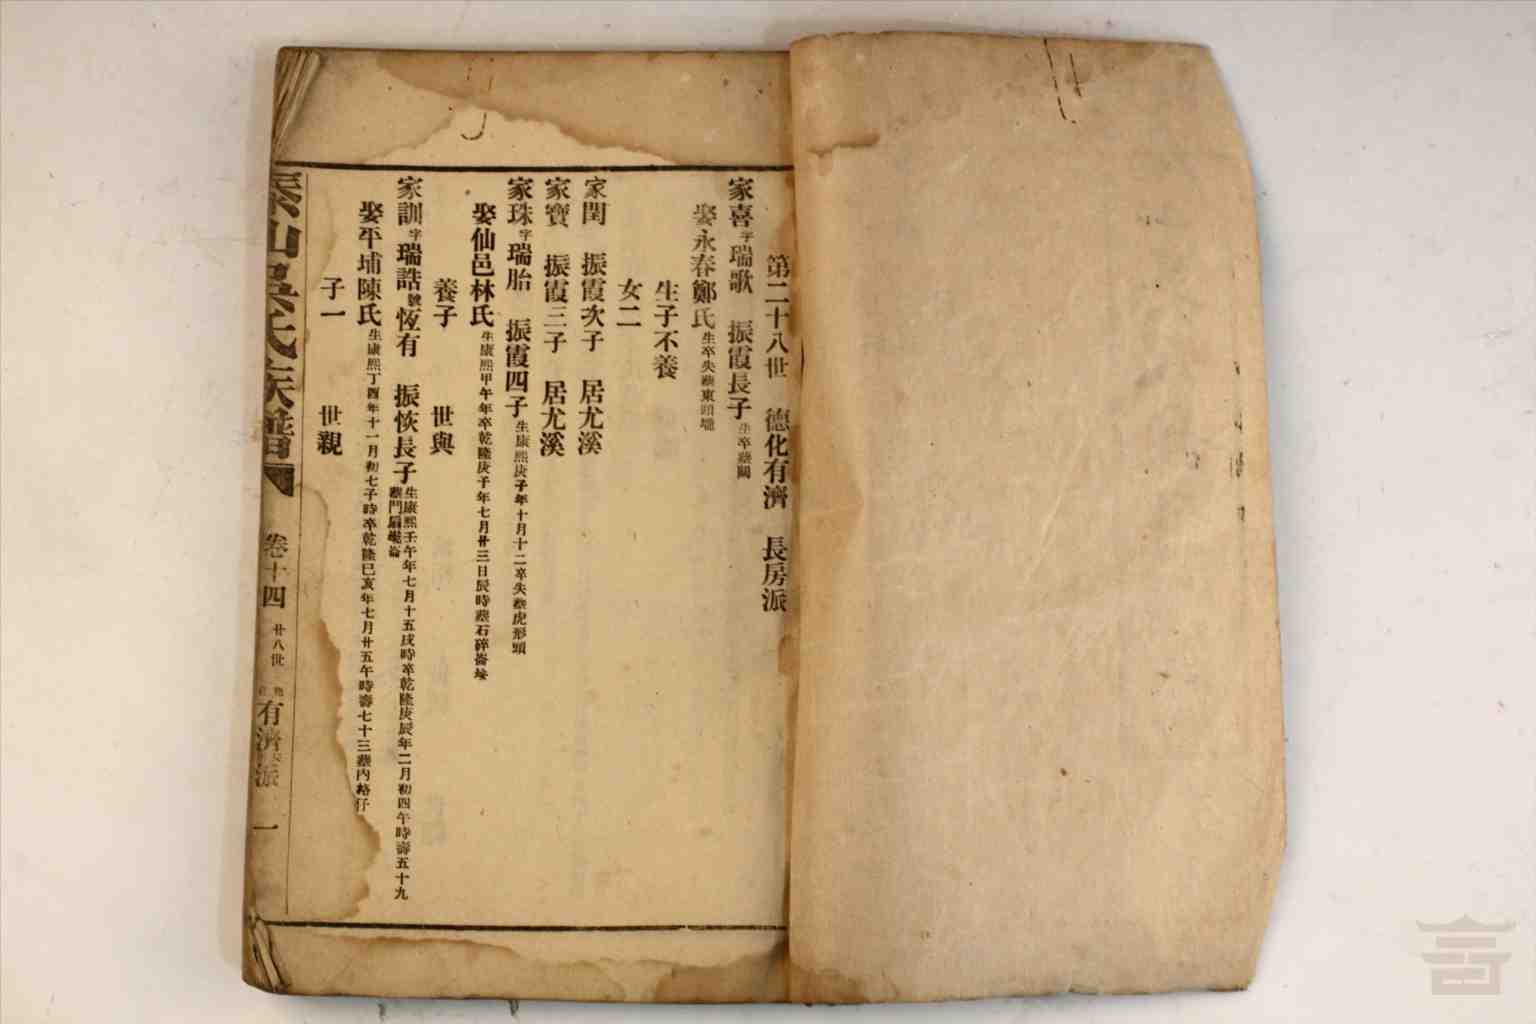 第二十八世 德化有濟 長房派
家喜字瑞歌 振霞長子生卒葬闕
娶永春鄭氏生卒失葬東頭壠
生子不養
女二
家閏 振霞次子 居尤溪
家寶 振霞三子 居尤溪
家珠字瑞胎 振霞四子生康熙庚子年十月十二卒失葬虎形頭
娶仙邑林氏生康熙甲午年卒乾隆庚子年七月廿三日辰時葬石碎崙垵
養子 世與
家訓字瑞誥號恆有 振恢長子生康熙壬午年七月十五戌時卒乾隆庚辰年二月初四午時壽五十九
葬門扇崙
娶平埔陳氏生康熙丁酉年十一月初七子時卒乾隆己亥年七月廿五午時壽七十三葬內格仔
子一 世親
山吳氏族譜 卷十四 廿八世 有濟派 一